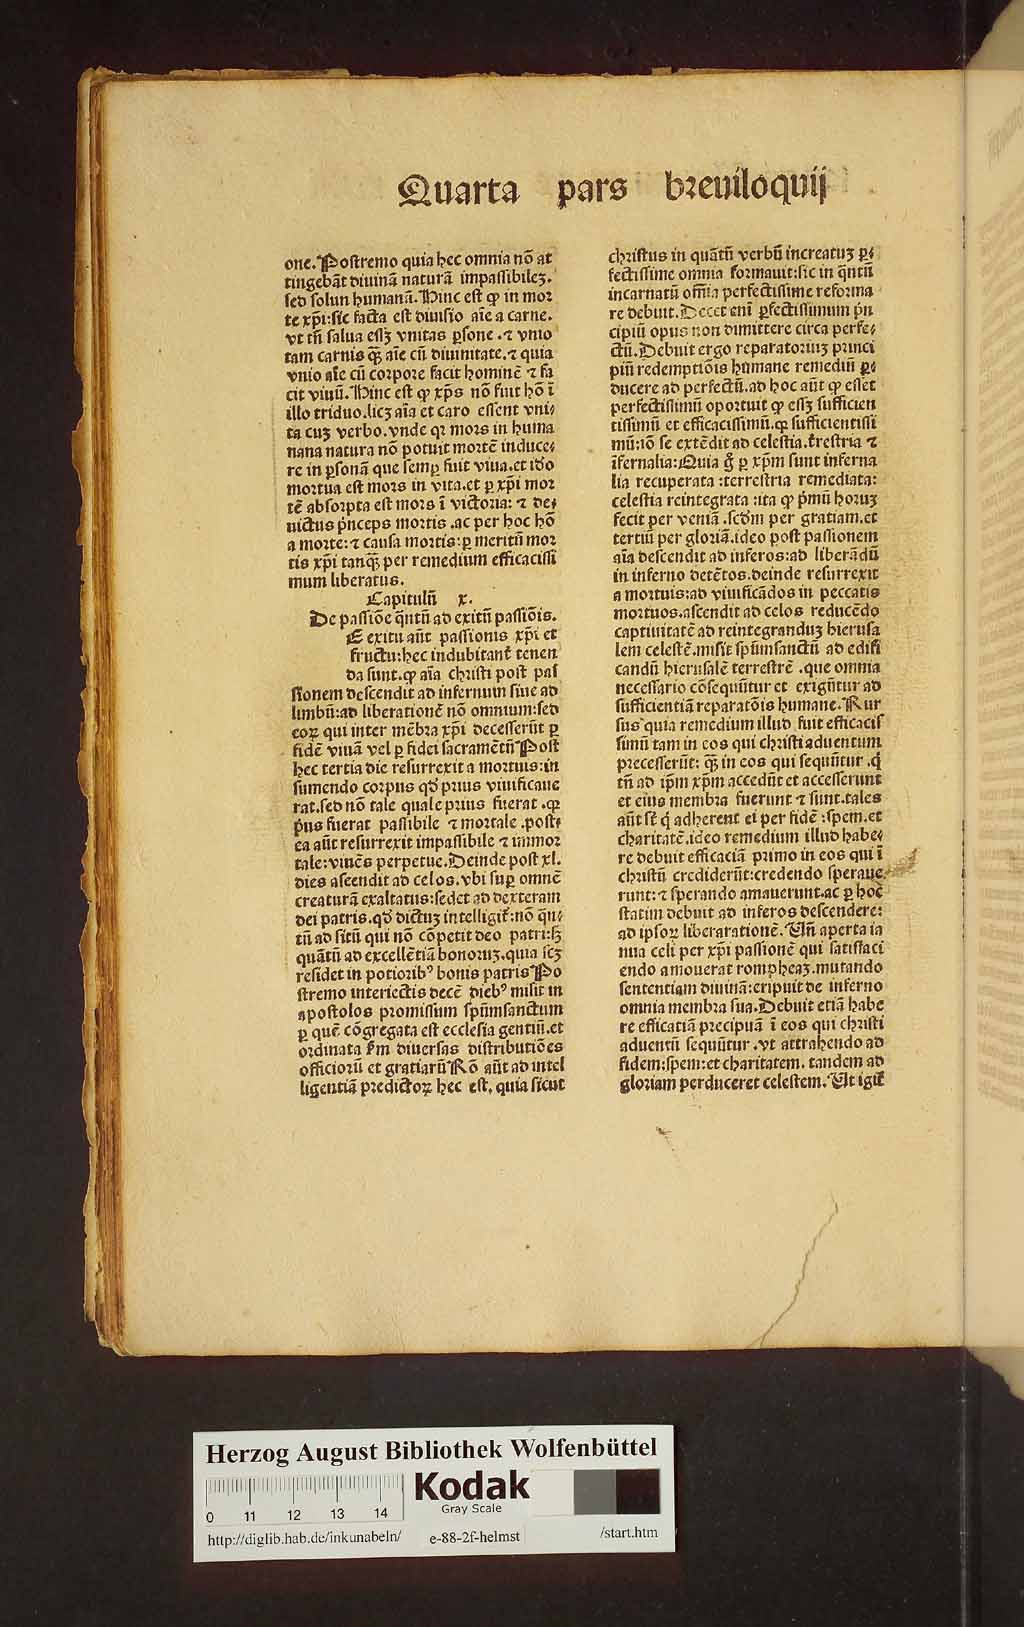 Quarta pars breuiloquij
one. Postremo quia hec omnia nō at
tingebāt diuinā naturā impassibileʒ.
sed solun humanā. Hinc est ꝙ in mor
te xp̄i: sic facta est diuisio aīe a carne.
vt tn̄ salua essʒ vnitas ꝑsone . ⁊ vnio
tam carnis qꝫ̄ aīe cū diuinitate. ⁊ quia
vnio aīe cū corpore facit hominē ⁊ fa
cit viuū. Hinc est ꝙ xp̄s nō fuit hō ī
illo triduo. licʒ aīa et caro essent vni⸗
ta cuʒ verbo. vnde qꝛ mors in huma
nana natura nō potuit mortē induce⸗
re in ꝑsonā que semꝑ fuit viua. et iđo
mortua est mors in vita. et ꝑ xp̄i mor
tē absorpta est mors ī victoria: ⁊ de⸗
uictus p̄nceps mortis . ac per hoc hō
a morte: ⁊ causa mortis: ꝑ meritū mor
tis xp̄i tanqꝫ̄ per remedium efficacissi
mum liberatus.
Capitulū x.
De passiōe q̄ntū ad exitū passiōis.
E exitu aūt passionis xp̄i et
fructu: hec indubitanť tenen
da sunt. ꝙ aīa christi post pas
sionem descendit ad infernum siue ad
limbū: ad liberationē nō omnium: sed
eoꝝ qui inter mēbra xp̄i decesserūt ꝑ
fidē viuā vel ꝑ fidei sacramētū Post
hec tertia die resurrexit a mortuis: in
sumendo corpus qđ prius viuificaue
rat. sed nō tale quale prius fuerat . qꝛ
p̄us fuerat passibile ⁊ mortale . post⸗
ea aūt resurrexit impassibile ⁊ immor
tale: viuēs perpetue. Deinde post xl.
dies ascendit ad celos. vbi suꝑ omnē
creaturā exaltatus: sedet ad dexteram
dei patris. qđ dictuʒ intelligiť: nō q̄n⸗
tū ad sitū qui nō cōpetit deo patri: sʒ
quātū ad excellētiā bonoruʒ. quia scʒ
residet in potioribꝰ bonis patris Po
stremo interiectis decē diebꝰ misit in
apostolos promissum sp̄umsanctum
ꝑ quē cōgregata est ecclesia gentiū. et
ordinata ẜm diuersas distributiōes
officiorū et gratiarū Rō aūt ad intel
ligentiā predictoꝝ hec est. quia sicut
christus in quātū verbū increatuʒ ꝑ⸗
fectissime omnia formauit: sic in q̄ntū
incarnatū om̄ia perfectissime reforma
re debuit. Decet enī ꝑfectissimum p̄n
cipiū opus non dimittere circa perfe⸗
ctū. Debuit ergo reparatoriuʒ princi
piū redemptiōis humane remediū ꝑ⸗
ducere ad perfectū. ad hoc aūt ꝙ esset
perfectissimū oportuit ꝙ essʒ sufficien
tissimū et efficacissimū. qꝛ sufficientissi
mū: iō se extēdit ad celestia. ťrestria ⁊
īfernalia: Quia ḡ ꝑ xp̄m sunt inferna
lia recuperata : terrestria remediata:
celestia reintegrata : ita ꝙ p̄mū horuʒ
fecit per veniā . scđm per gratiam. et
tertiū per gloriā. ideo post passionem
aīa descendit ad inferos: ad liberādū
in inferno detētos. deinde resurrexit
a mortuis: ad viuificādos in peccatis
mortuos. ascendit ad celos reducēdo
captiuitatē ad reintegranduʒ hierusa
lem celestē. misit sp̄umsanctū ad edifi
candū hierusalē terrestrē . que omnia
necessario cōsequūtur et exigūtur ad
sufficientiā reparatōis humane. Rur
sus quia remedium illud fuit efficacis
simū tam in eos qui christi aduentum
precesserūt: qꝫ̄ in eos qui sequūtur . q̄
tn̄ ad ip̄m xp̄m accedūt et accesserunt
et eius membra fuerunt ⁊ sunt. tales
aūt sť q̄ adherent ei per fidē : spem. et
charitatē. ideo remedium illud habe⸗
re debuit efficaciā primo in eos qui ī
christū crediderūt: credendo speraue.
runt: ⁊ sperando amauerunt. ac ꝑ hoc
statim debuit ad inferos descendere:
ad ipsoꝝ liberarationē. Vn̄ aperta ia
nua celi per xp̄i passionē qui satisfaci
endo amouerat rompheaʒ. mutando
sententiam diuinā: eripuit de inferno
omnia membra sua. Debuit etiā habe
re efficatiā precipuā ī eos qui christi
aduentū sequūtur . vt attrahendo ad
fidem: spem: et charitatem. tandem ad
gloriam perduceret celestem. Vt igiť
Herzog August Bibliothek Wolfenbüttel
Kodak
Gray Scale
0 11 12 13 14
http://diglib.hab.de/inkunabeln/ e-88-2f-helmst /start.htm